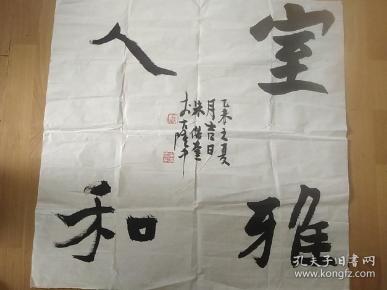 室雅
人和
乙未之夏
月吉日
孔夫子旧书网
www.kongfz.com